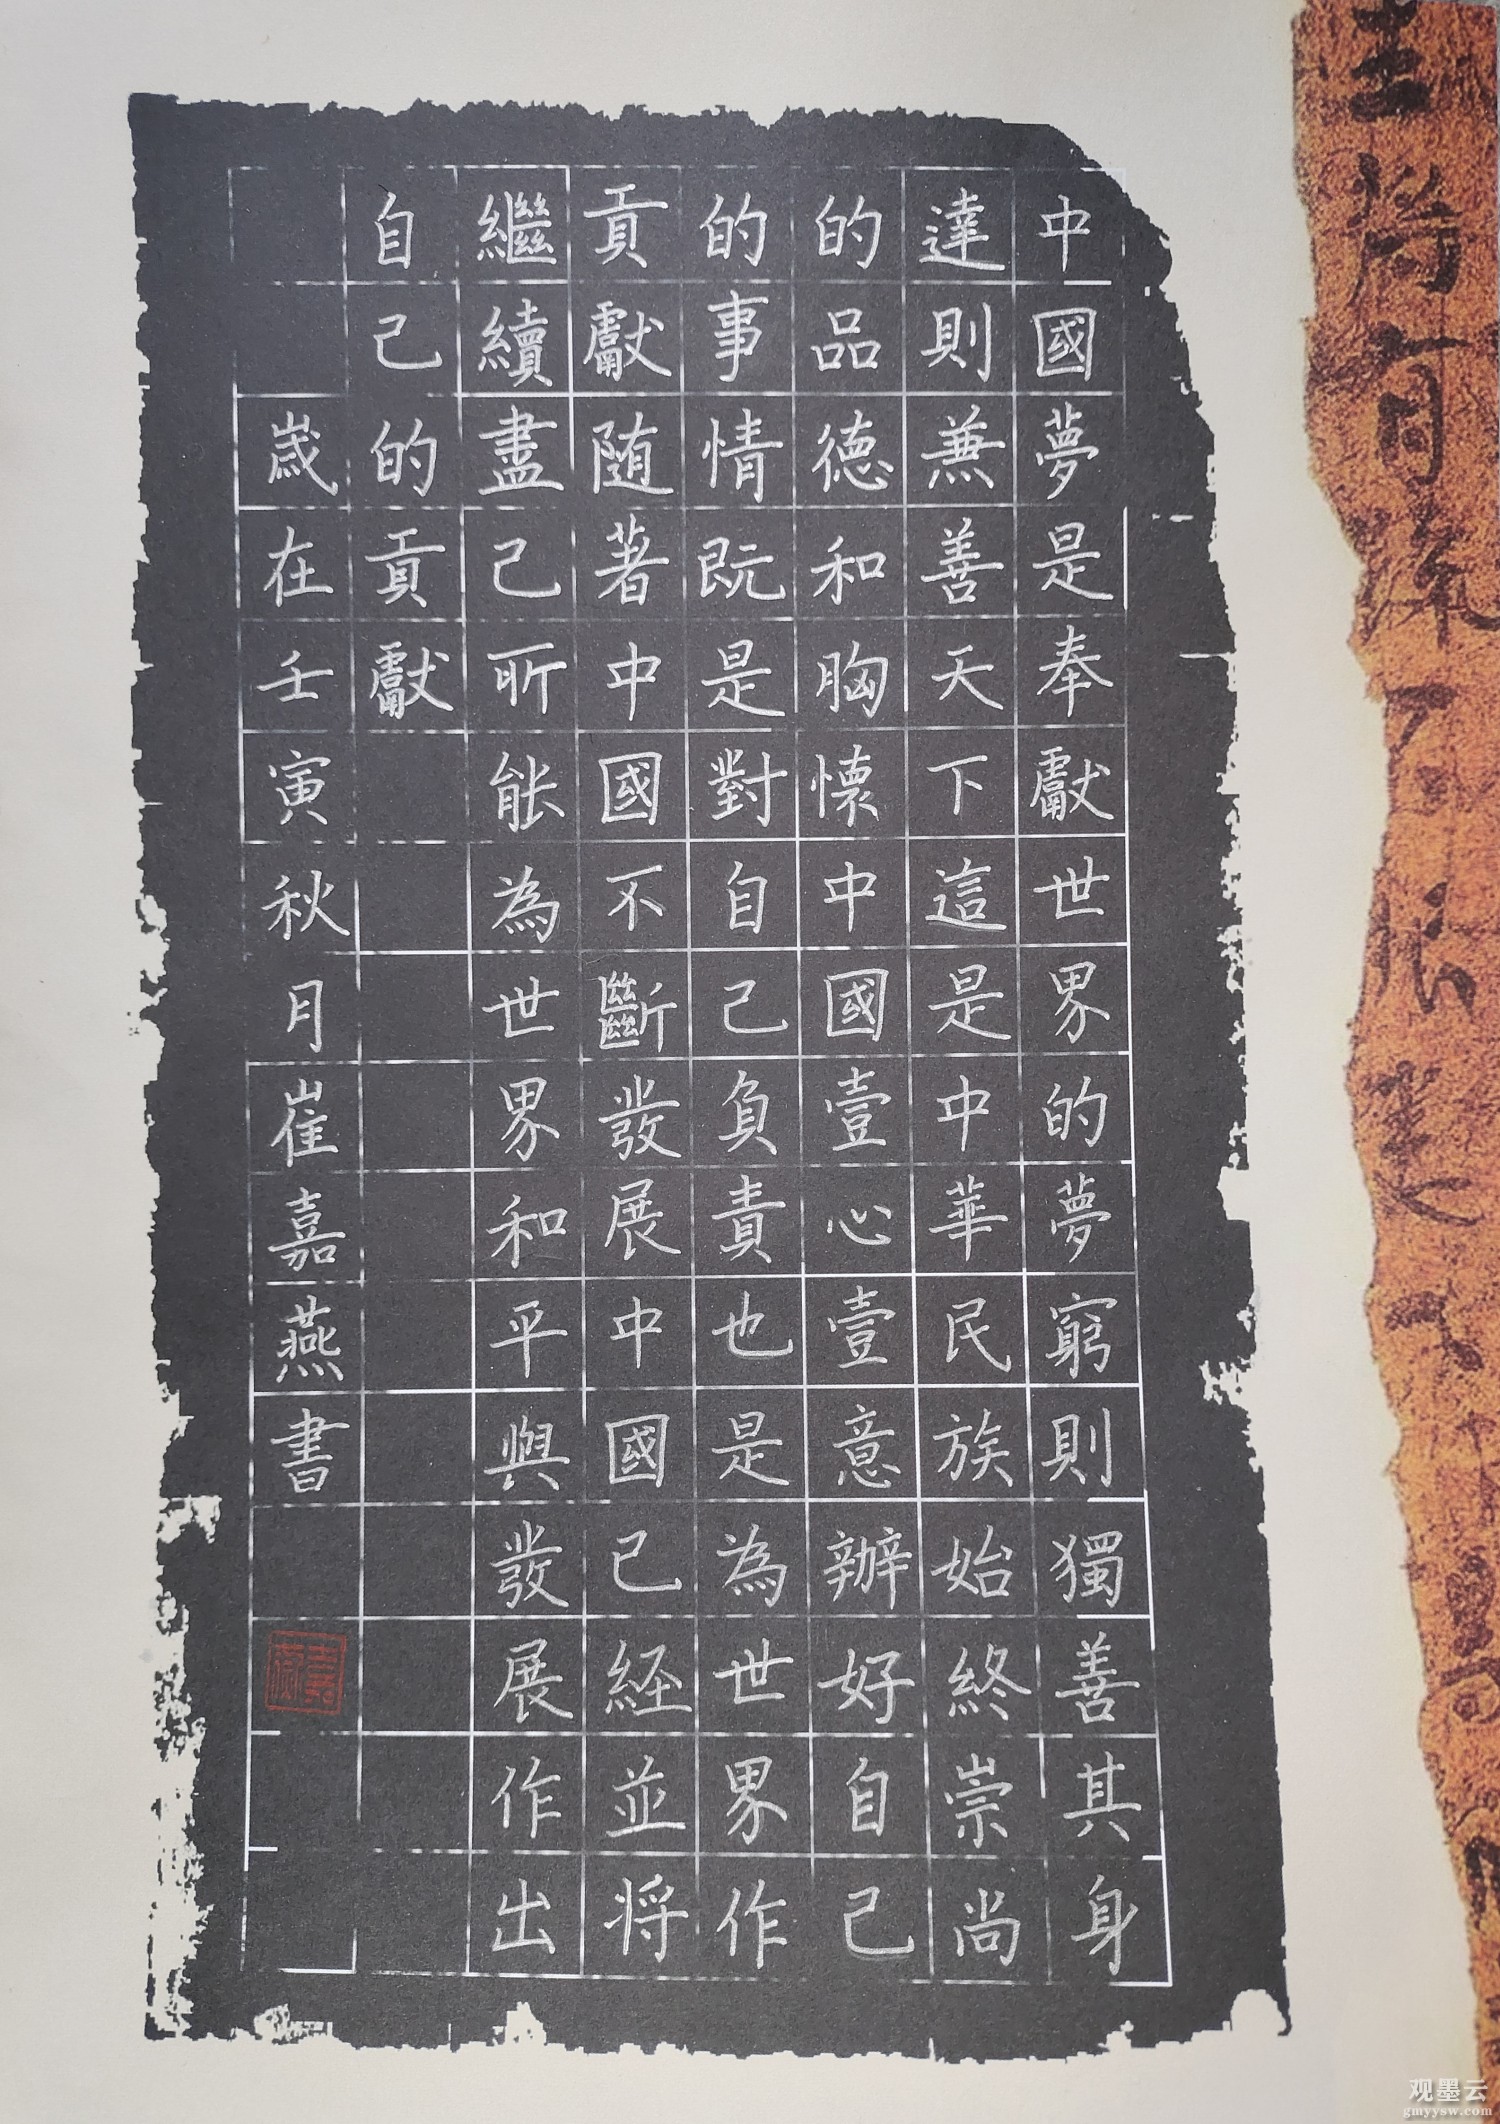 中國夢是奉獻世界的夢窮則獨善其身
達則兼善天下這是中華民族始終崇尚
的品德和胸懷中國壹心壹意辦好自己
的事情既是對自己負責也是為世界作
貢獻随著中國不斷發展中國已経並将
繼續盡己所能為世界和平與發展作出
自己的貢獻
歲在壬寅秋月崔嘉燕書
观墨云
gmyysw.com